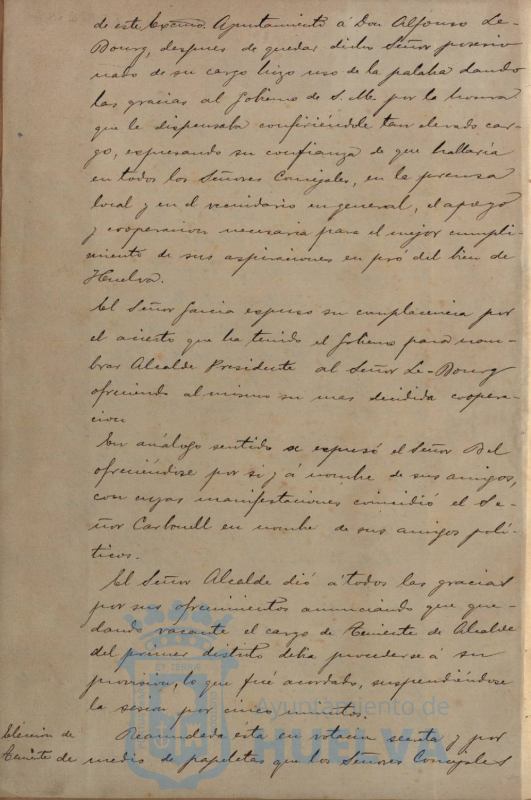 de este Excmo. Ayuntamiento á Don Alfonso Le-
Bourg, despues de quedar dicho Señor posesio
nado de su cargo hizo uso de la palabra dando
las gracias al Gobierno de S. M. por la honra
que le dispensaba confiriéndole tan elevado car-
go, expresando su confianza de que hallaría
en todos los Señores Concejales, en la prensa
local y en el vecindario en general, el apoyo
y cooperacion necesaria para el mejor cumpli-
miento de sus aspiraciones en pró del bien de
Huelva.
El Señor Garcia expuso su complacencia por
el acierto que ha tenido el Gobierno para nom-
brar Alcalde Presidente al Señor Le-Bourg
ofreciendo al mismo su mas decidida coopera-
cion
En análogo sentido se expresó el Señor Del
ofreciéndose por si y á nombre de sus amigos,
con cuyas manifestaciones coincidió el Se-
ñor Carbonell en nombre de sus amigos polí-
ticos.
El Señor Alcalde dió á todos las gracias
por sus ofrecimientos anunciando que que-
dando vacante el cargo de Teniente de Alcalde
del primer distrito debia procederse á su
provision, lo que fué acordado, suspendiéndose
la sesion por cinco minutos.
Eleccion de
Teniente de
Reanudada ésta en votacion secreta y por
medio de papeletas que los Señores Concejales
Ayuntamiento de
HUELVA